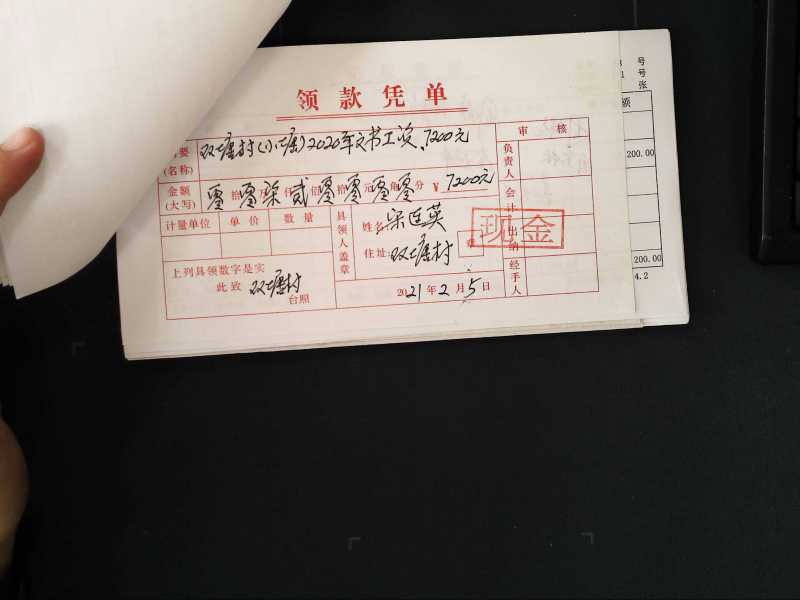 领款凭单
要 双塘村(小塘)2020年文书工资.7200元
(名称)
金额
(大写) 零拾零万柒仟贰佰零拾零元零角零分 ¥ 7200元
计量单位 单价 数量
具领人盖章
姓名 宋廷英
住址: 双塘村
章
上列具领数字是实
此致 双塘村
台照
2021年2月5日
审核
负责人
会计
出纳
经手人
现金
号
号
张
额
200.00
200.00
4.2